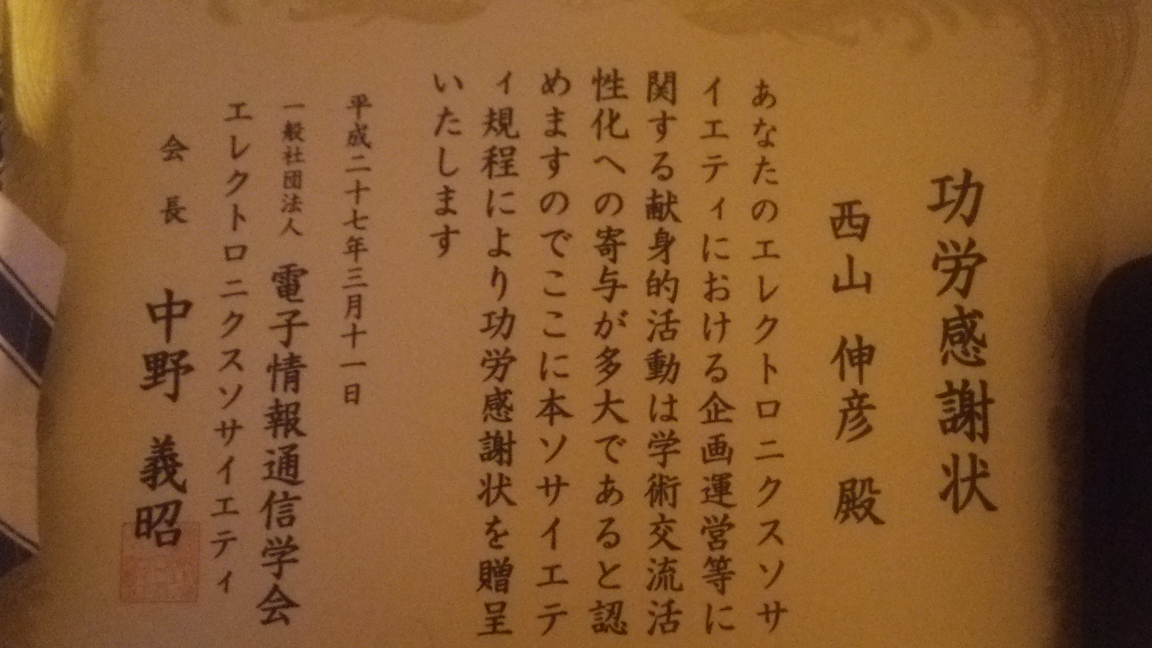 功労感謝状
西山 伸彦 殿
あなたのエレクトロニクスソサ
イエティにおける企画運営等に
関する献身的活動は学術交流活
性化への寄与が多大であると認
めますのでここに本ソサイエテ
ィ規程により功労感謝状を贈呈
いたします
平成二十七年三月十一日
一般社団法人 電子情報通信学会
エレクトロニクスソサイエティ
会長 中野 義昭